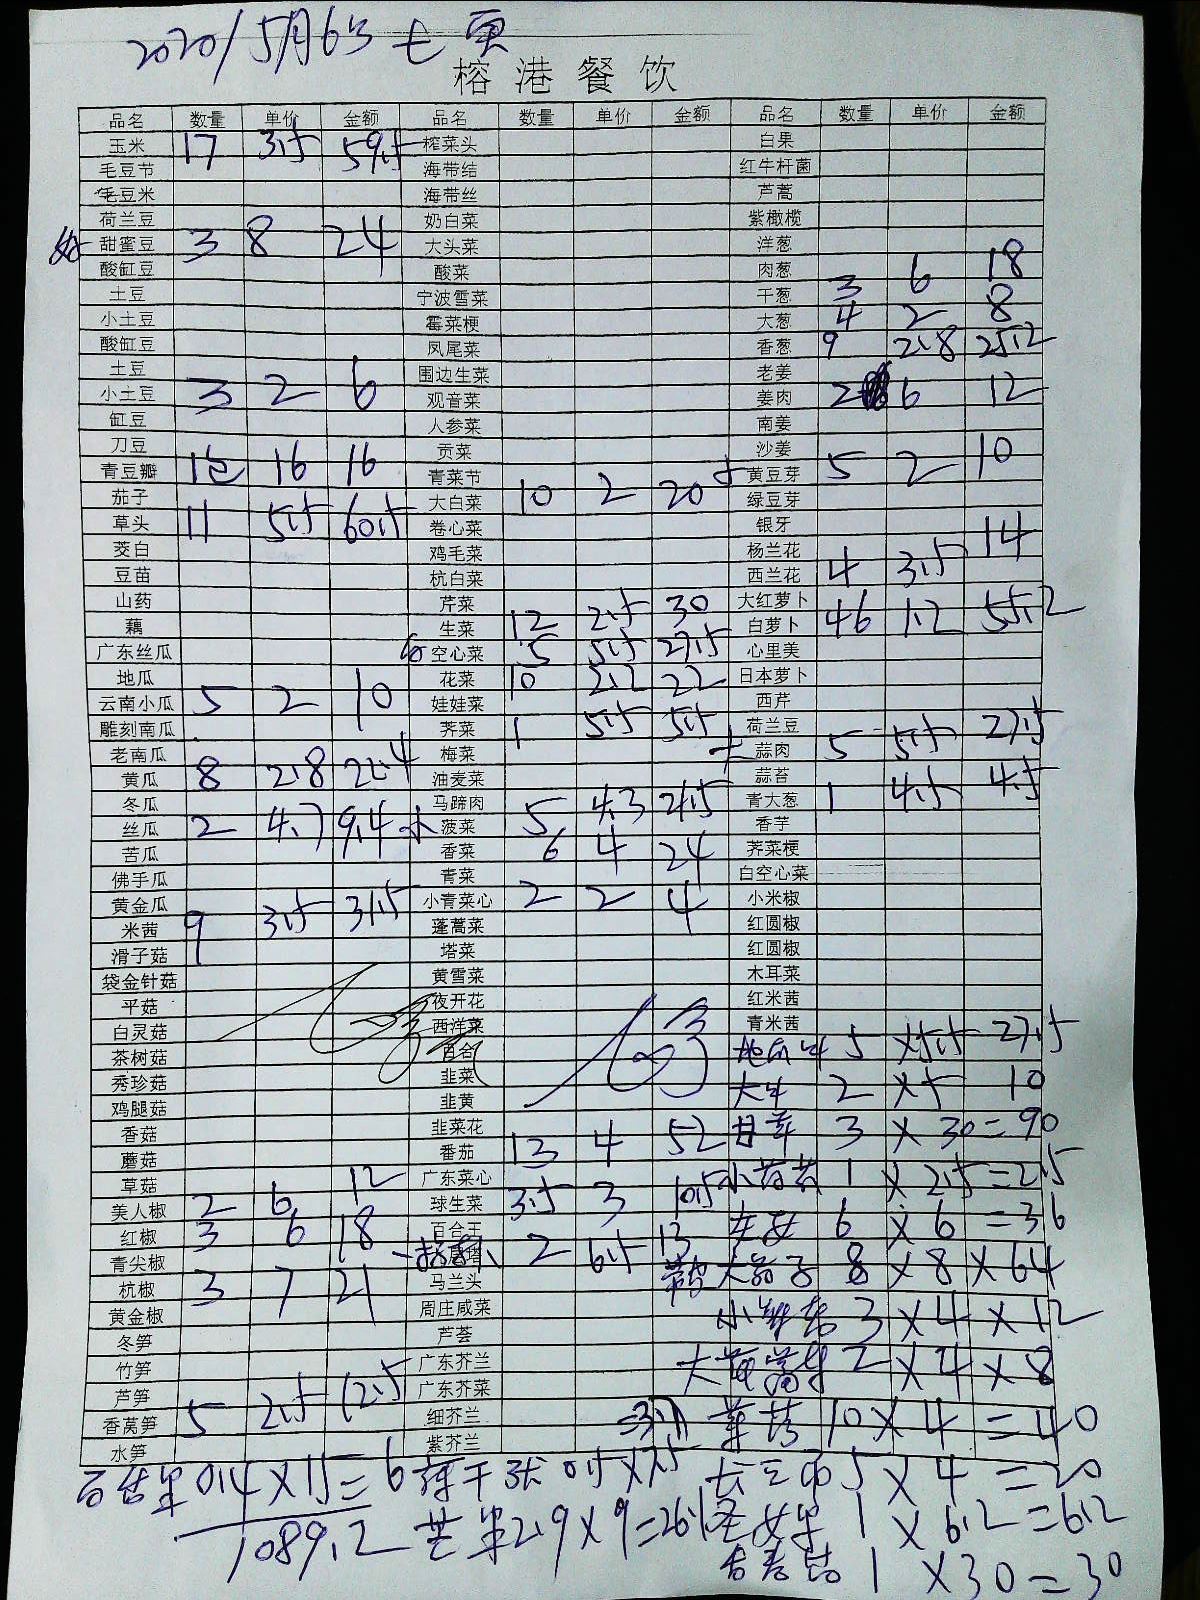 2020/5月6号
榕港餐饮
品名 数量 单价 金额 品名 数量 单价 金额 品名 数量 单价 金额
玉米 17 3.5 59.5 榨菜头 白果
毛豆节 海带结 红牛杆菌
毛豆米 海带丝 芦蒿
荷兰豆 奶白菜 紫橄榄
甜蜜豆 3 8 24 大头菜 洋葱
酸缸豆 酸菜 肉葱
土豆 宁波雪菜 干葱 3 6 18
小土豆 霉菜梗 大葱 4 2 8
酸缸豆 凤尾菜 香葱 9 2.8 25.2
土豆 围边生菜 老姜
小土豆 3 2 6 观音菜 姜肉 2 6 12
缸豆 人参菜 南姜
刀豆 贡菜 沙姜
青豆瓣 1包 16 16 青菜节 黄豆芽 5 2 10
茄子 大白菜 10 2 20 绿豆芽
草头 11 5.5 60.5 卷心菜 银牙
茭白 鸡毛菜 杨兰花
豆苗 杭白菜 西兰花 4 3.5 14
山药 芹菜 大红萝卜
藕 生菜 12 2.5 30 白萝卜 46 1.2 55.2
广东丝瓜 空心菜 5 5.5 27.5 心里美
地瓜 花菜 10 2.2 22 日本萝卜
云南小瓜 5 2 10 娃娃菜 西芹
雕刻南瓜 荠菜 1 5.5 5.5 荷兰豆
老南瓜 梅菜 蒜肉 5 5.5 27.5
黄瓜 8 2.8 22.4 油麦菜 蒜苔
冬瓜 马蹄肉 青大葱 1 4.5 4.5
丝瓜 2 4.7 9.4 小菠菜 5 4.3 21.5 香芋
苦瓜 香菜 6 4 24 荠菜梗
佛手瓜 青菜 白空心菜
黄金瓜 小青菜心 2 2 4 小米椒
米茜 9 3.5 31.5 蓬蒿菜 红圆椒
滑子菇 塔菜 红圆椒
袋金针菇 黄雪菜 木耳菜
平菇 夜开花 红米茜
白灵菇 西洋菜 青米茜
茶树菇 百合 5 ×5.5 27.5
秀珍菇 韭菜 2 ×5 10
鸡腿菇 韭黄
香菇 韭菜花 3 × 30=90
蘑菇 番茄 13 4 52
草菇 广东菜心 1 × 2.5=2.5
美人椒 2 6 12 球生菜 3.5 3 10.5
红椒 3 6 18 百合王 6 × 6 =36
青尖椒 2 6.5 13 8 × 8 × 64
杭椒 3 7 21 马兰头
黄金椒 周庄咸菜 3 × 4 × 12
冬笋 芦荟
竹笋 广东芥兰 2 × 4 × 8
芦笋 广东芥菜
香莴笋 5 2.5 12.5 细芥兰 10 × 4 = 40
水笋 紫芥兰
0.4×15=6 5 × 4 = 20
1089.2 芒果2.9×9=26.1 圣女果 1 × 6.2=6.2
1 ×30=30